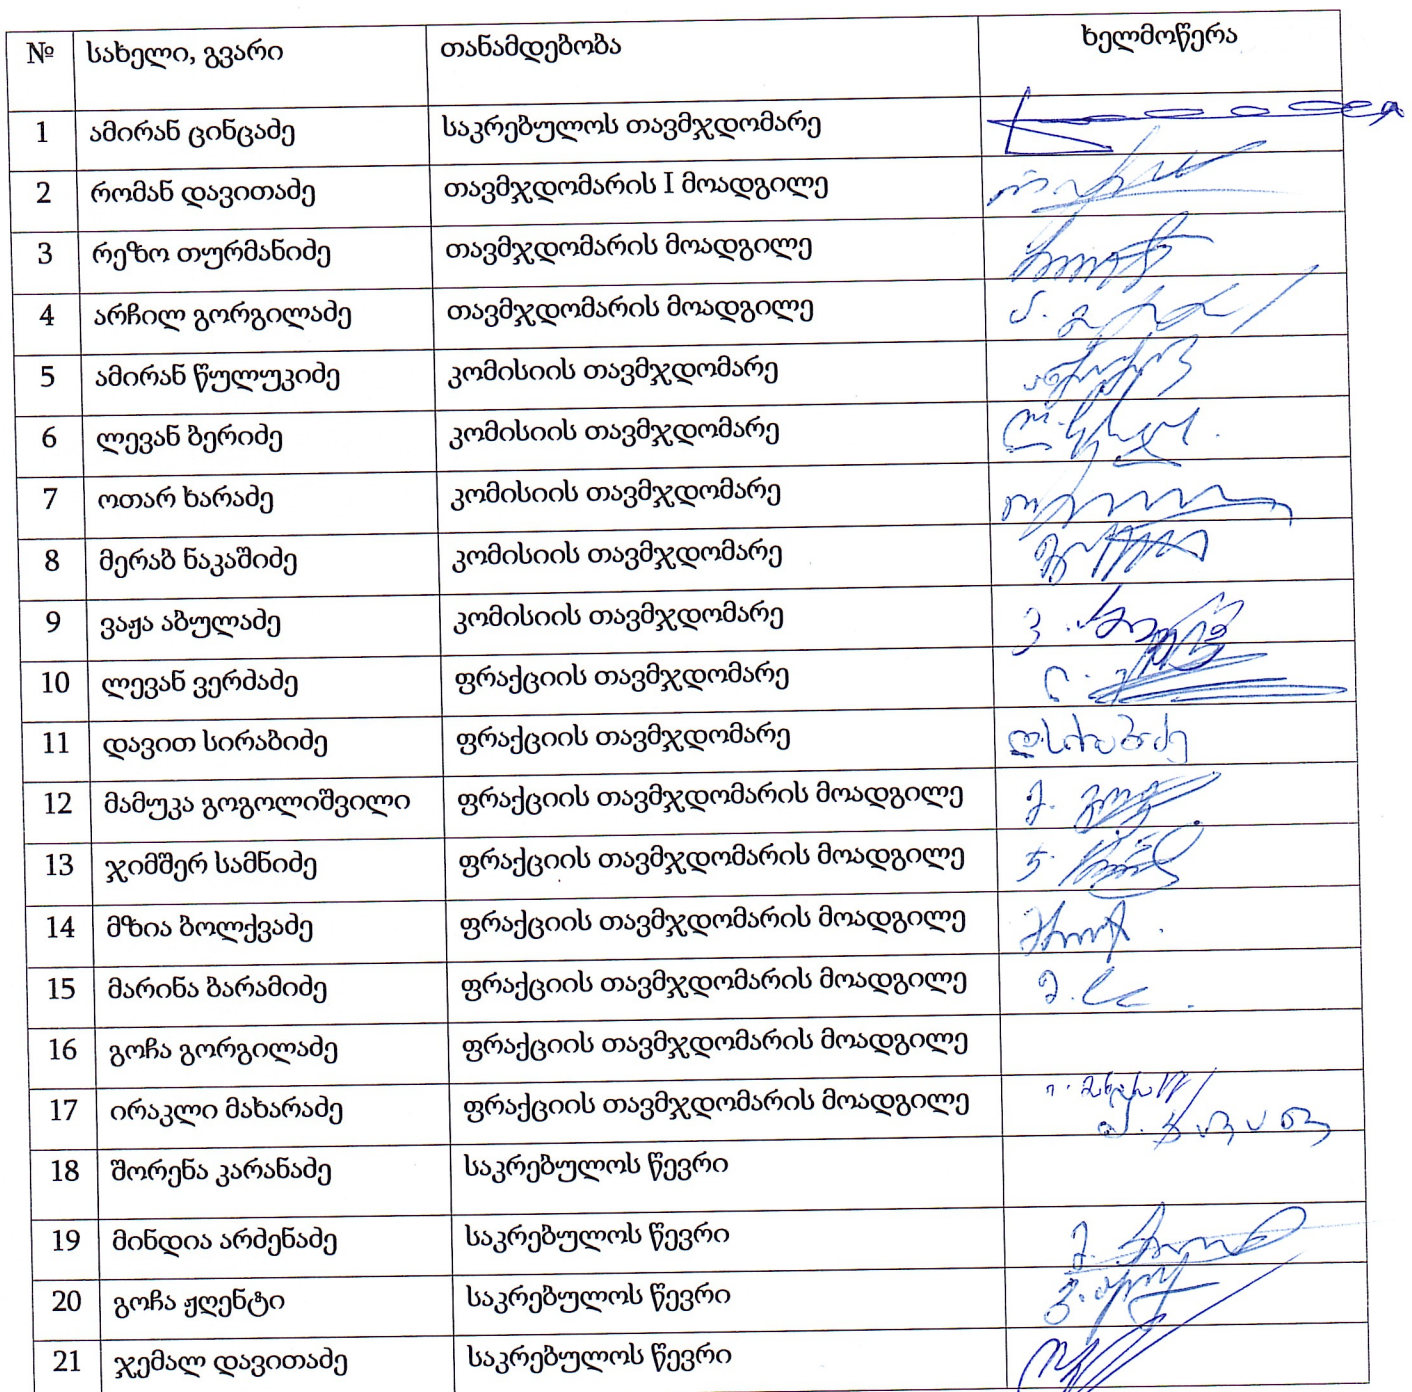 № სახელი, გვარი თანამდებობა ხელმოწერა
1 ამირან ცინცაძე საკრებულოს თავმჯდომარე
2 რომან დავითაძე თავმჯდომარის I მოადგილე
3 რეზო თურმანიძე თავმჯდომარის მოადგილე
4 არჩილ გორგილაძე თავმჯდომარის მოადგილე
5 ამირან წულუკიძე კომისიის თავმჯდომარე
6 ლევან ბერიძე კომისიის თავმჯდომარე
7 ოთარ ხარაძე კომისიის თავმჯდომარე
8 მერაბ ნაკაშიძე კომისიის თავმჯდომარე
9 ვაჟა აბულაძე კომისიის თავმჯდომარე
10 ლევან ვერძაძე ფრაქციის თავმჯდომარე
11 დავით სირაბიძე ფრაქციის თავმჯდომარე დ.სირაბიძე
12 მამუკა გოგოლიშვილი ფრაქციის თავმჯდომარის მოადგილე
13 ჯიმშერ სამნიძე ფრაქციის თავმჯდომარის მოადგილე
14 მზია ბოლქვაძე ფრაქციის თავმჯდომარის მოადგილე
15 მარინა ბარამიძე ფრაქციის თავმჯდომარის მოადგილე
16 გოჩა გორგილაძე ფრაქციის თავმჯდომარის მოადგილე
17 ირაკლი მახარაძე ფრაქციის თავმჯდომარის მოადგილე
18 შორენა კარანაძე საკრებულოს წევრი
19 მინდია არძენაძე საკრებულოს წევრი
20 გოჩა ჟღენტი საკრებულოს წევრი
21 ჯემალ დავითაძე საკრებულოს წევრი